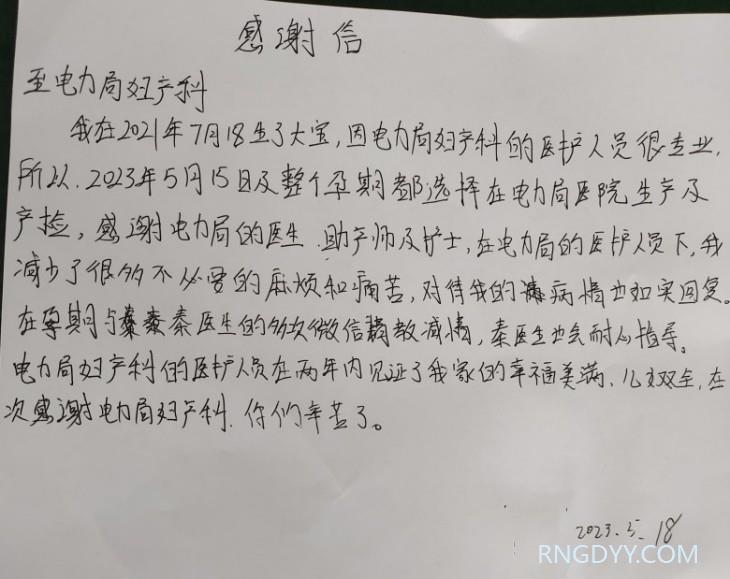 感谢信
至电力局妇产科
我在2021年7月18生了大宝,因电力局妇产科的医护人员很专业,
所以.2023年5月15日及整个孕期都选择在电力局医院生产及
产检,感谢电力局的医生.助产师及护士,在电力局的医护人员下,我
减少了很多不必要的麻烦和痛苦,对待我的病情也如实回复。
在孕期与秦医生的多次微信请教减情,秦医生也会耐心指导。
电力局妇产科的医护人员在两年内见证了我家的幸福美满、儿女双全,在
次感谢电力局妇产科.你们辛苦了。
2023.5.18
RNGDYY.COM